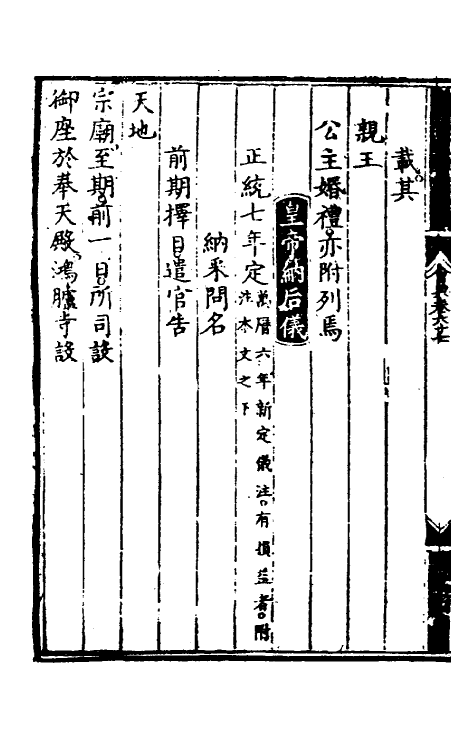 載其
親王
公主婚禮亦附列焉
皇帝納后儀
正統七年定萬曆六年新定儀注有損益者附
注本文之下
納采問名
前期擇日遣官告
天地
宗廟至期前一日所司設
御座於奉天殿鴻臚寺設